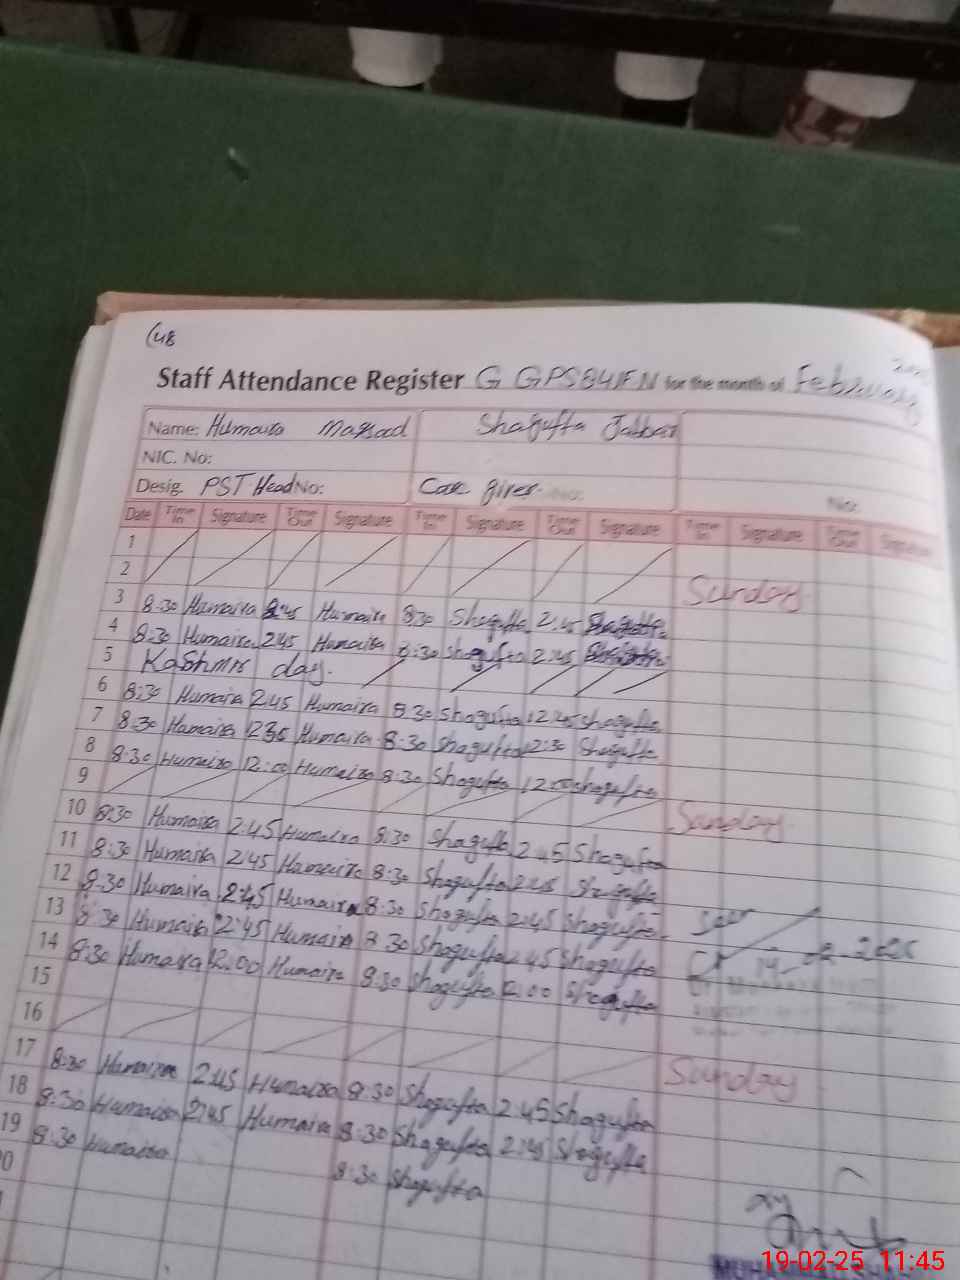 148
Staff Attendance Register G GPS 84/FN for the month of February
Name: Humaira Massad Shagufta Jabbar
NIC. No:
Desig. PST Head No: Care giver No:
Date Time In Signature Time Out Signature Time In Signature Time Out Signature Time In Signature Time Out Signature
1
2 Sunday
3 8:30 Humaira 2:45 Humaira 8:30 Shagufta 2:45 Shagufta
4 8:30 Humaira 2:45 Humaira 8:30 Shagufta 2:45 Shagufta
5 Kashmir day.
6 8:30 Humaira 2:45 Humaira 8:30 Shagufta 2:45 Shagufta
7 8:30 Humaira 12:30 Humaira 8:30 Shagufta 12:30 Shagufta
8 8:30 Humaira 12:00 Humaira 8:30 Shagufta 12:00 Shagufta
9 Sunday
10 8:30 Humaira 2:45 Humaira 8:30 Shagufta 2:45 Shagufta
11 8:30 Humaira 2:45 Humaira 8:30 Shagufta 2:45 Shagufta
12 8:30 Humaira 2:45 Humaira 8:30 Shagufta 2:45 Shagufta
13 8:30 Humaira 2:45 Humaira 8:30 Shagufta 2:45 Shagufta Seen
14 8:30 Humaira 12:00 Humaira 8:30 Shagufta 12:00 Shagufta 14-02-2025
15
16 Sunday
17 8:30 Humaira 2:45 Humaira 8:30 Shagufta 2:45 Shagufta
18 8:30 Humaira 2:45 Humaira 8:30 Shagufta 2:45 Shagufta
19 8:30 Humaira 8:30 Shagufta
19-02-25 11:45